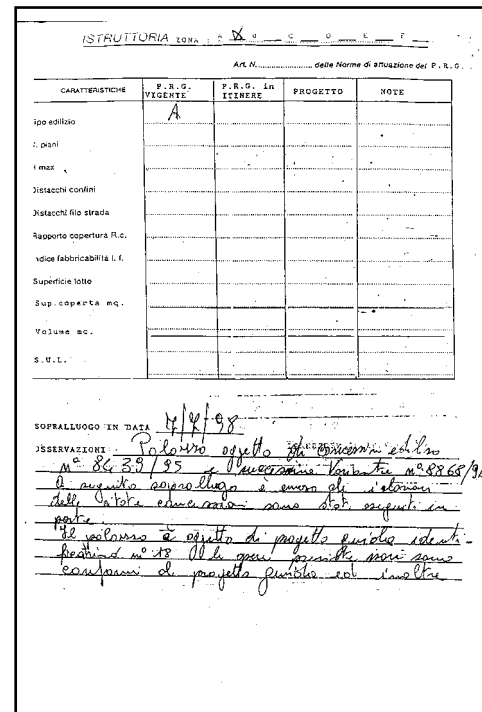 ISTRUTTORIA ZONA : A B C D E F
Art. N. ............ delle Norme di attuazione del P.R.G.
CARATTERISTICHE P.R.G. VIGENTE P.R.G. in ITINERE PROGETTO NOTE
ipo edilizio A
. piani
max
Distacchi confini
Distacchi filo strada
Rapporto copertura R.c.
ndice fabbricabilità I. f.
Superficie lotto
Sup.coperta mq.
Volume mc.
S.U.L.
SOPRALLUOGO IN DATA 98
OSSERVAZIONI Palazzo oggetto di concessioni edilizie
n° 8439/95 e successive Variante n° 8868/9
A seguito sopralluogo è emerso
delle concessioni sono stati eseguiti in
parte.
Il palazzo è oggetto di progetto guida identi-
n° 18 previste non sono
conformi al progetto guida ed inoltre